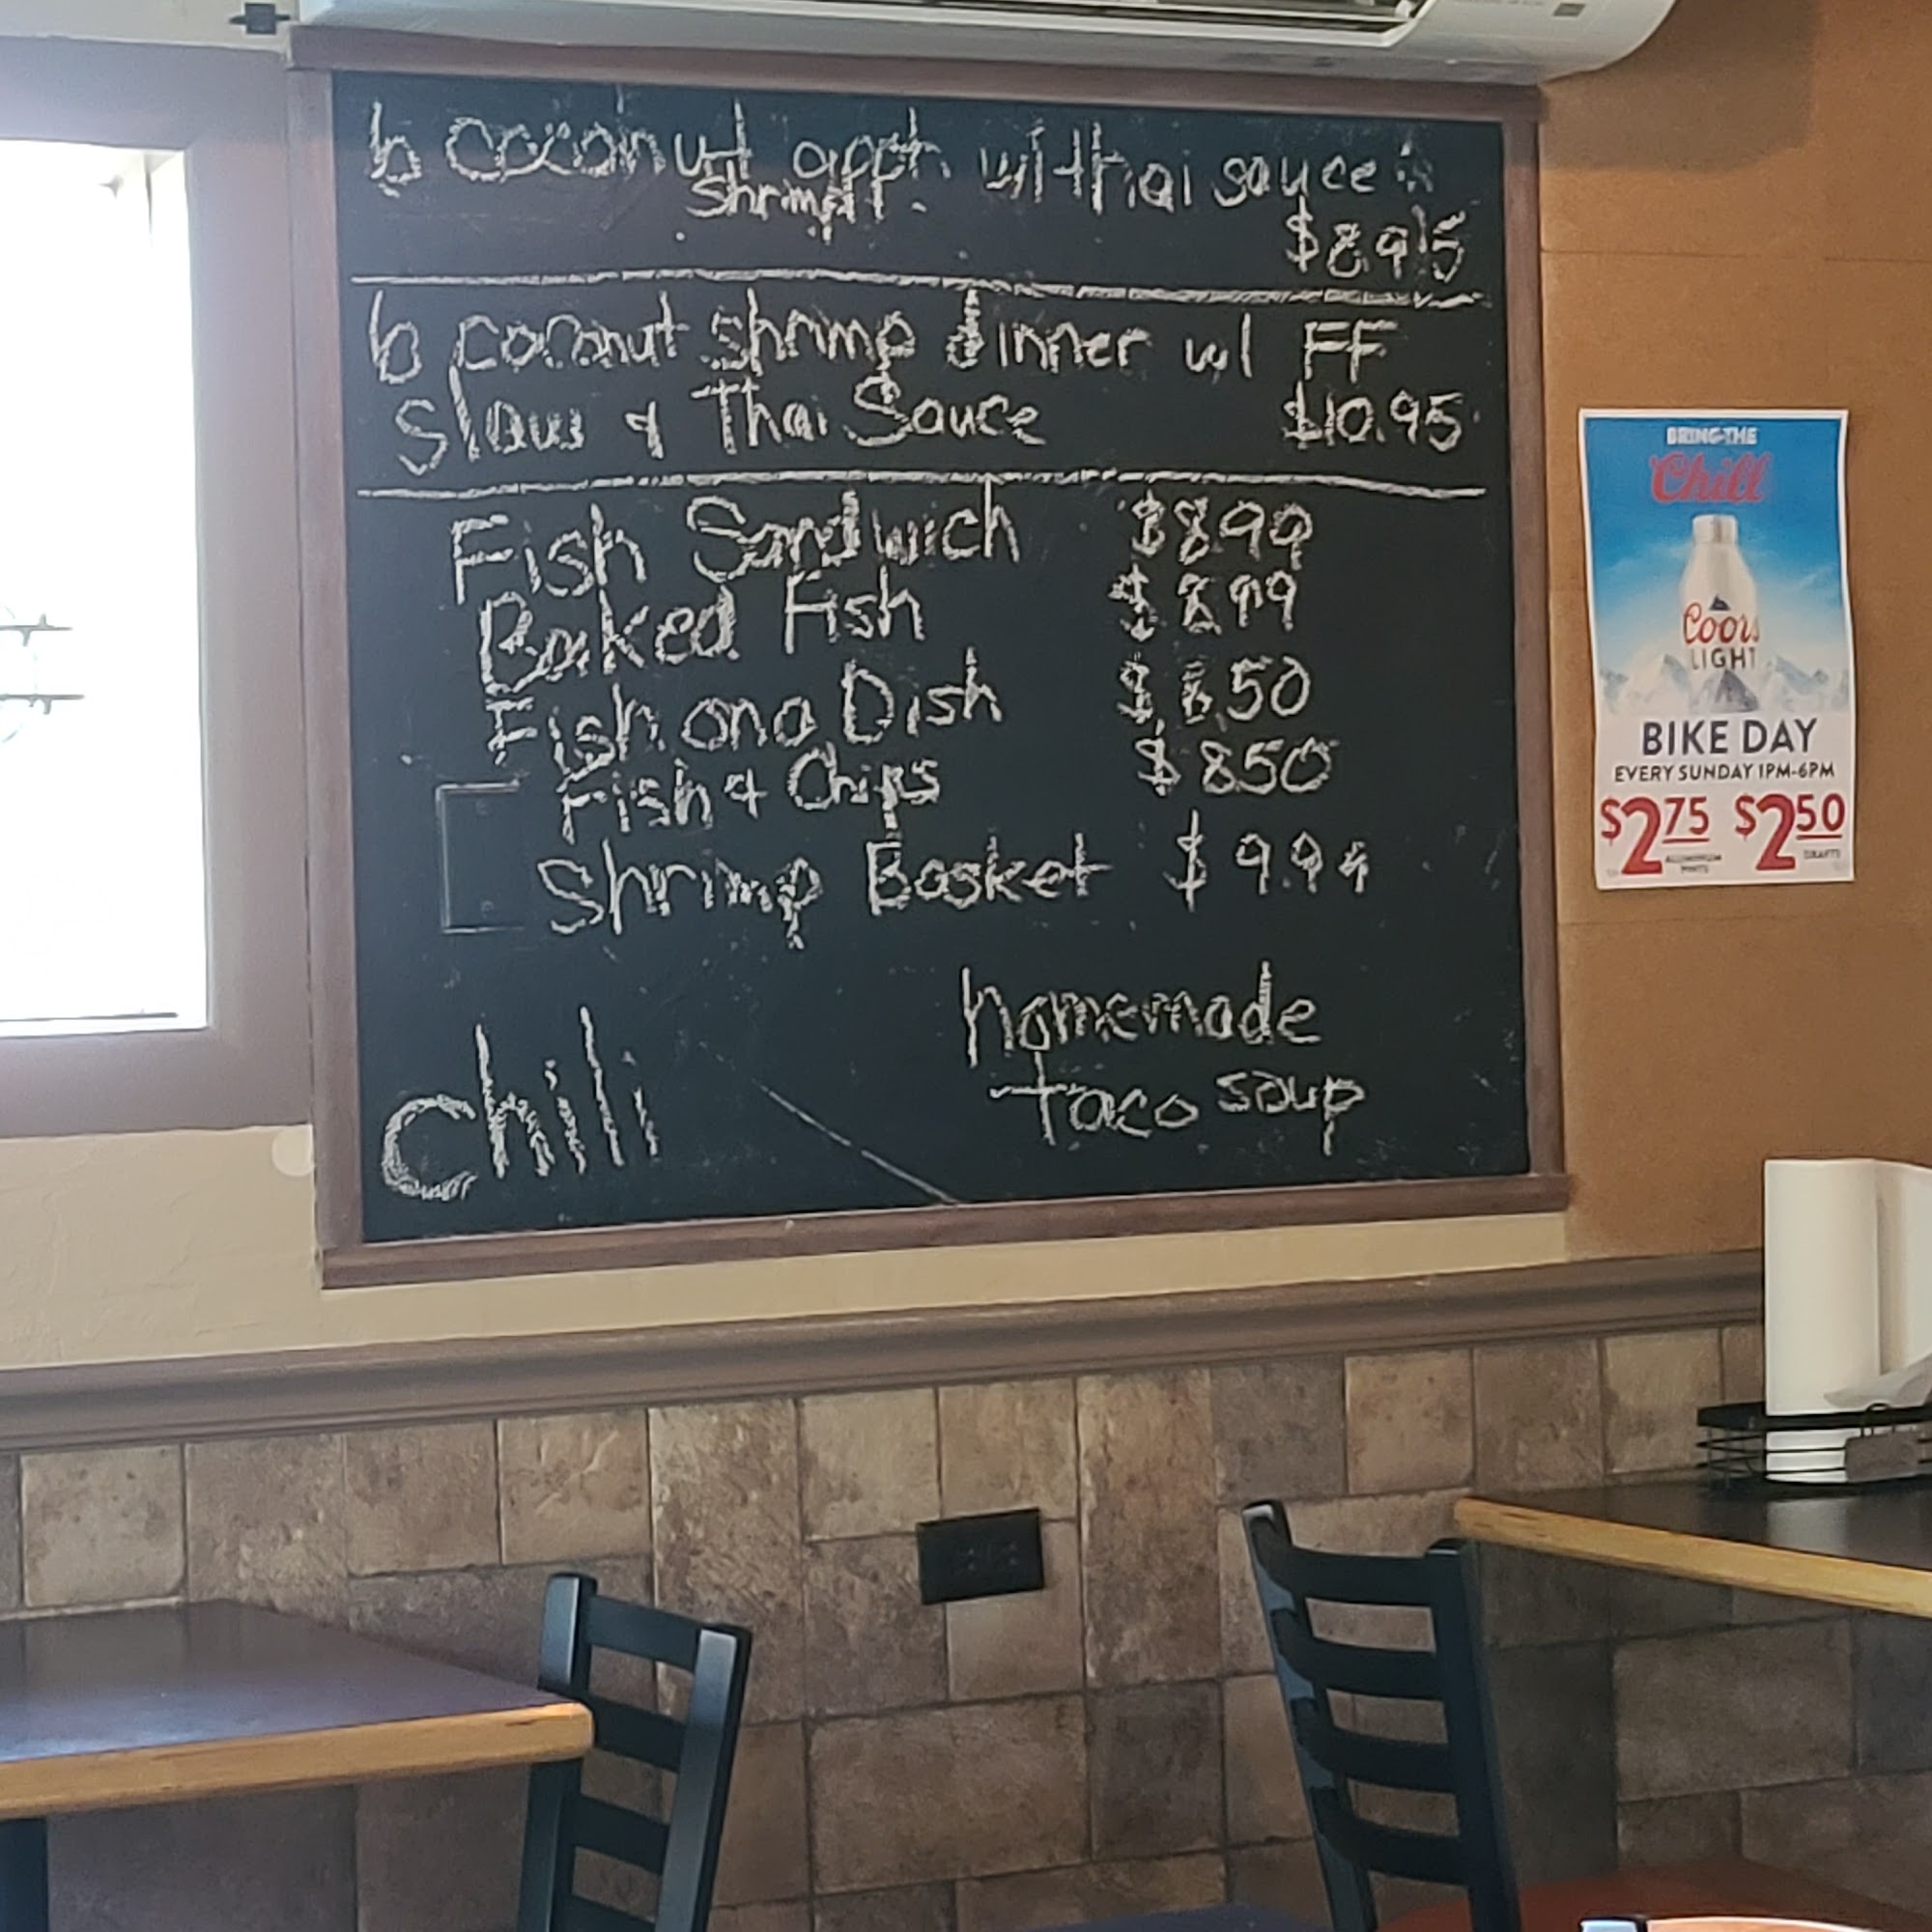 6 coconut w/ thai sauce
Shrimp
$8.95
6 coconut shrimp dinner w/ FF
Slaw & Thai Sauce $10.95
Fish Sandwich $8.99
Baked Fish $8.99
Fish on a Dish $8.50
Fish & Chips $8.50
Shrimp Basket $9.99
homemade
chili taco soup
BRING THE
Chill
Coors
LIGHT
BIKE DAY
EVERY SUNDAY 1PM-6PM
$2.75 $2.50
ALUMINUM PINTS DRAFTS